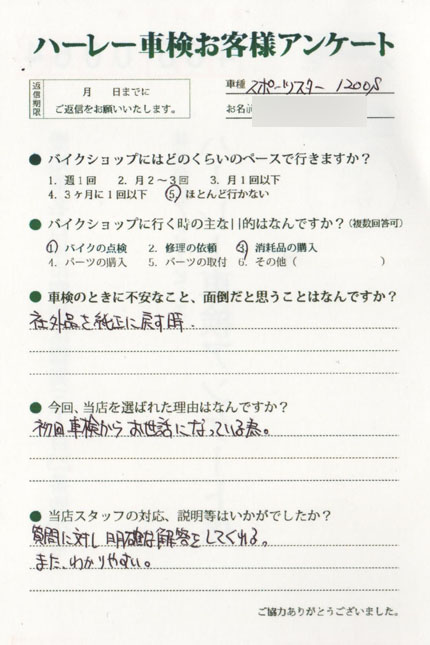 ハーレー車検お客様アンケート
返信期限
月 日までに
ご返信をお願いいたします。
車種 スポーツスター 1200S
お名前
● バイクショップにはどのくらいのペースで行きますか？
1. 週1回 2. 月2～3回 3. 月1回以下
4. 3ヶ月に1回以下 5. ほとんど行かない
● バイクショップに行く時の主な目的はなんですか？(複数回答可)
1. バイクの点検 2. 修理の依頼 3. 消耗品の購入
4. パーツの購入 5. パーツの取付 6. その他（ ）
● 車検のときに不安なこと、面倒だと思うことはなんですか？
社外品を純正に戻す時.
● 今回、当店を選ばれた理由はなんですか？
初回車検からお世話になっている為。
● 当店スタッフの対応、説明等はいかがでしたか？
質問に対し明確な解答をしてくれる。
また、わかりやすい。
ご協力ありがとうございました。